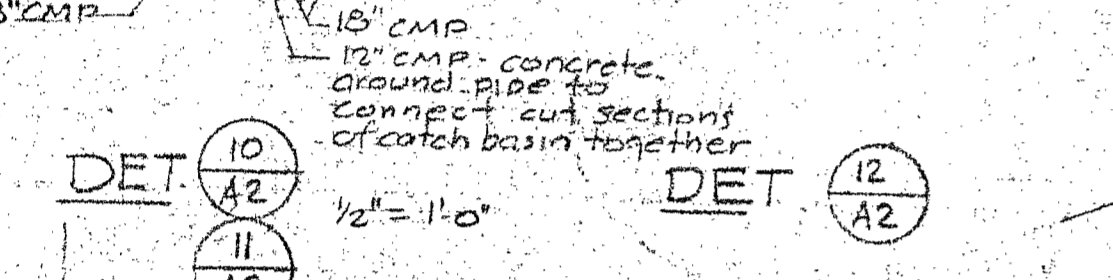 8"CMP
18" CMP
12" CMP - concrete
around pipe to
connect cut sections
of catch basin together
DET. 10
A2
1/2" = 1'-0"
DET 12
A2
11